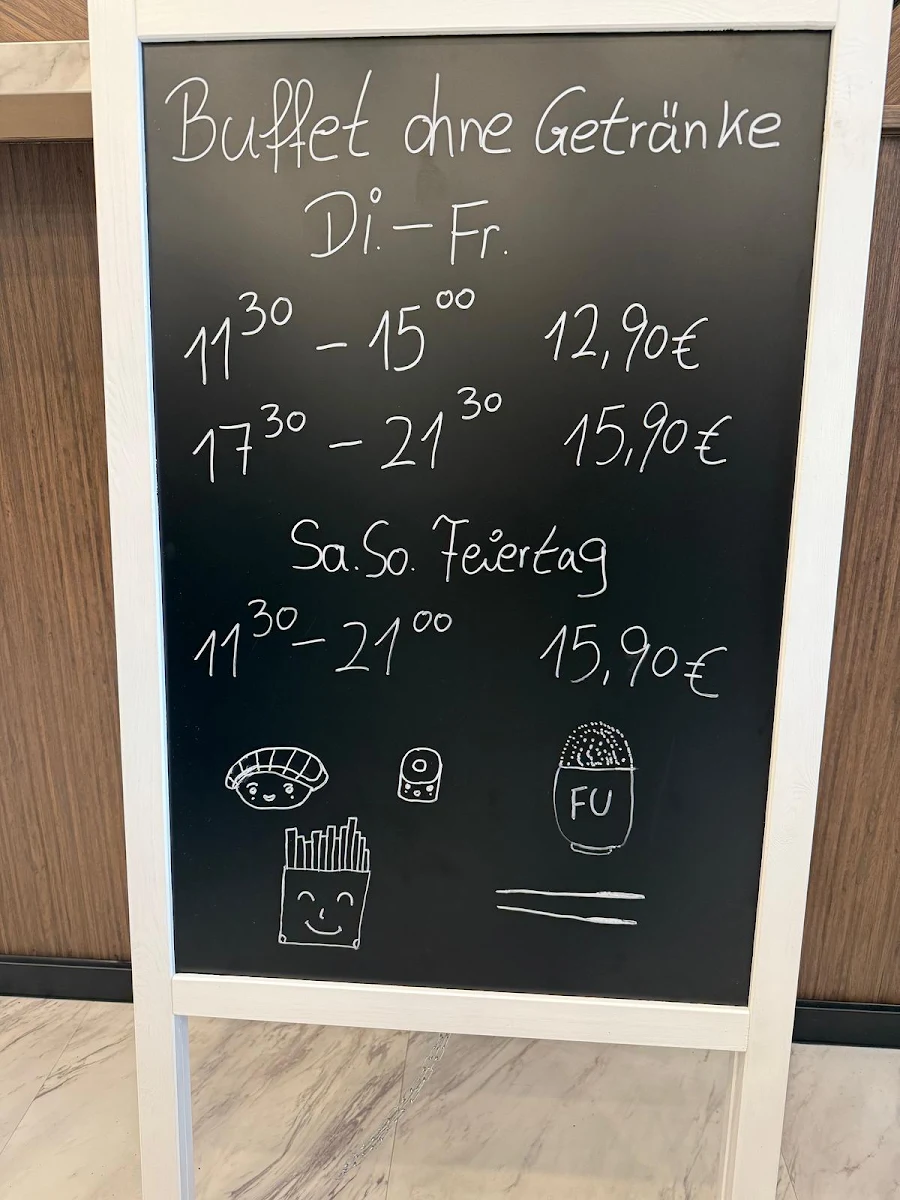 Buffet ohne Getränke
Di. – Fr.
11³⁰ – 15⁰⁰ 12,90€
17³⁰ – 21³⁰ 15,90€
Sa. So. Feiertag
11³⁰ – 21⁰⁰ 15,90€
FU